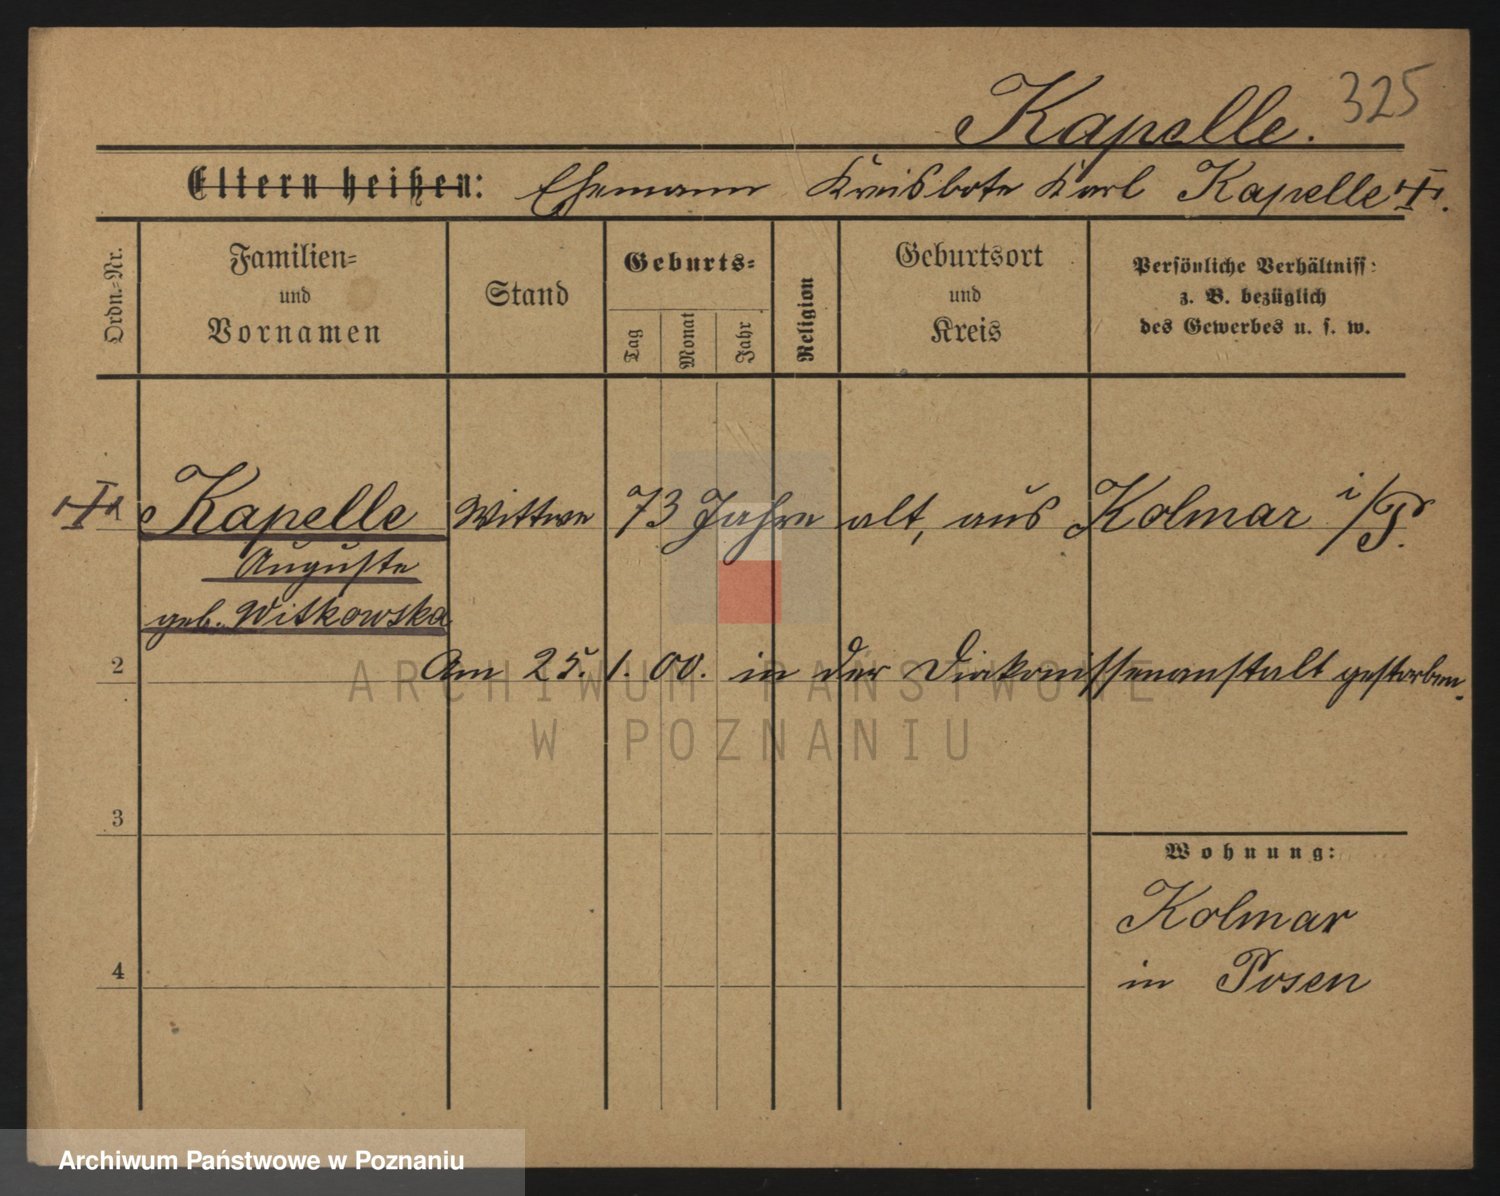 325
Kapelle.
Eltern heißen: Ehemann Kreisbote Karl Kapelle
Ordn.-Nr.
Familien-
und
Vornamen
Stand
Geburts-
Tag
Monat
Jahr
Religion
Geburtsort
und
Kreis
Persönliche Verhältniss:
z. B. bezüglich
des Gewerbes u. s. w.
Kapelle Wittwe 73 Jahre alt, aus Kolmar i/P.
Auguste
geb. Witkowska
2 Am 25. 1. 00. in der Diakonissenanstalt gestorben.
ARCHIWUM PAŃSTWOWE
W POZNANIU
3
Wohnung:
Kolmar
4
in Posen
Archiwum Państwowe w Poznaniu